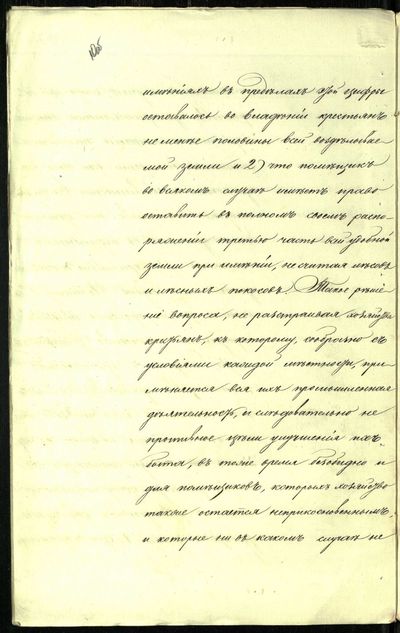 имѣніяхъ въ предѣлахъ этой цифры
оставалось во владѣніи крестьянъ
не менѣе половины всей воздѣлывае-
мой земли и 2) что помѣщикъ
во всякомъ случаѣ имѣетъ право
оставить въ полномъ своемъ распо-
ряженіи третью часть всей удобной
земли при имѣніи, не считая лѣсовъ
и лѣсныхъ покосовъ. Такое рѣше-
ніе вопроса, не разстраивая хозяйства
крестьянъ, къ которому, сообразно съ
условіями каждой мѣстности, при-
мѣняется вся ихъ промышленная
дѣятельность, и слѣдовательно не
противное цѣли улучшенія ихъ
быта, въ тоже время безобидно и
для помѣщиковъ, которыхъ хозяйство
также остается неприкосновеннымъ
и которые ни въ какомъ случаѣ не